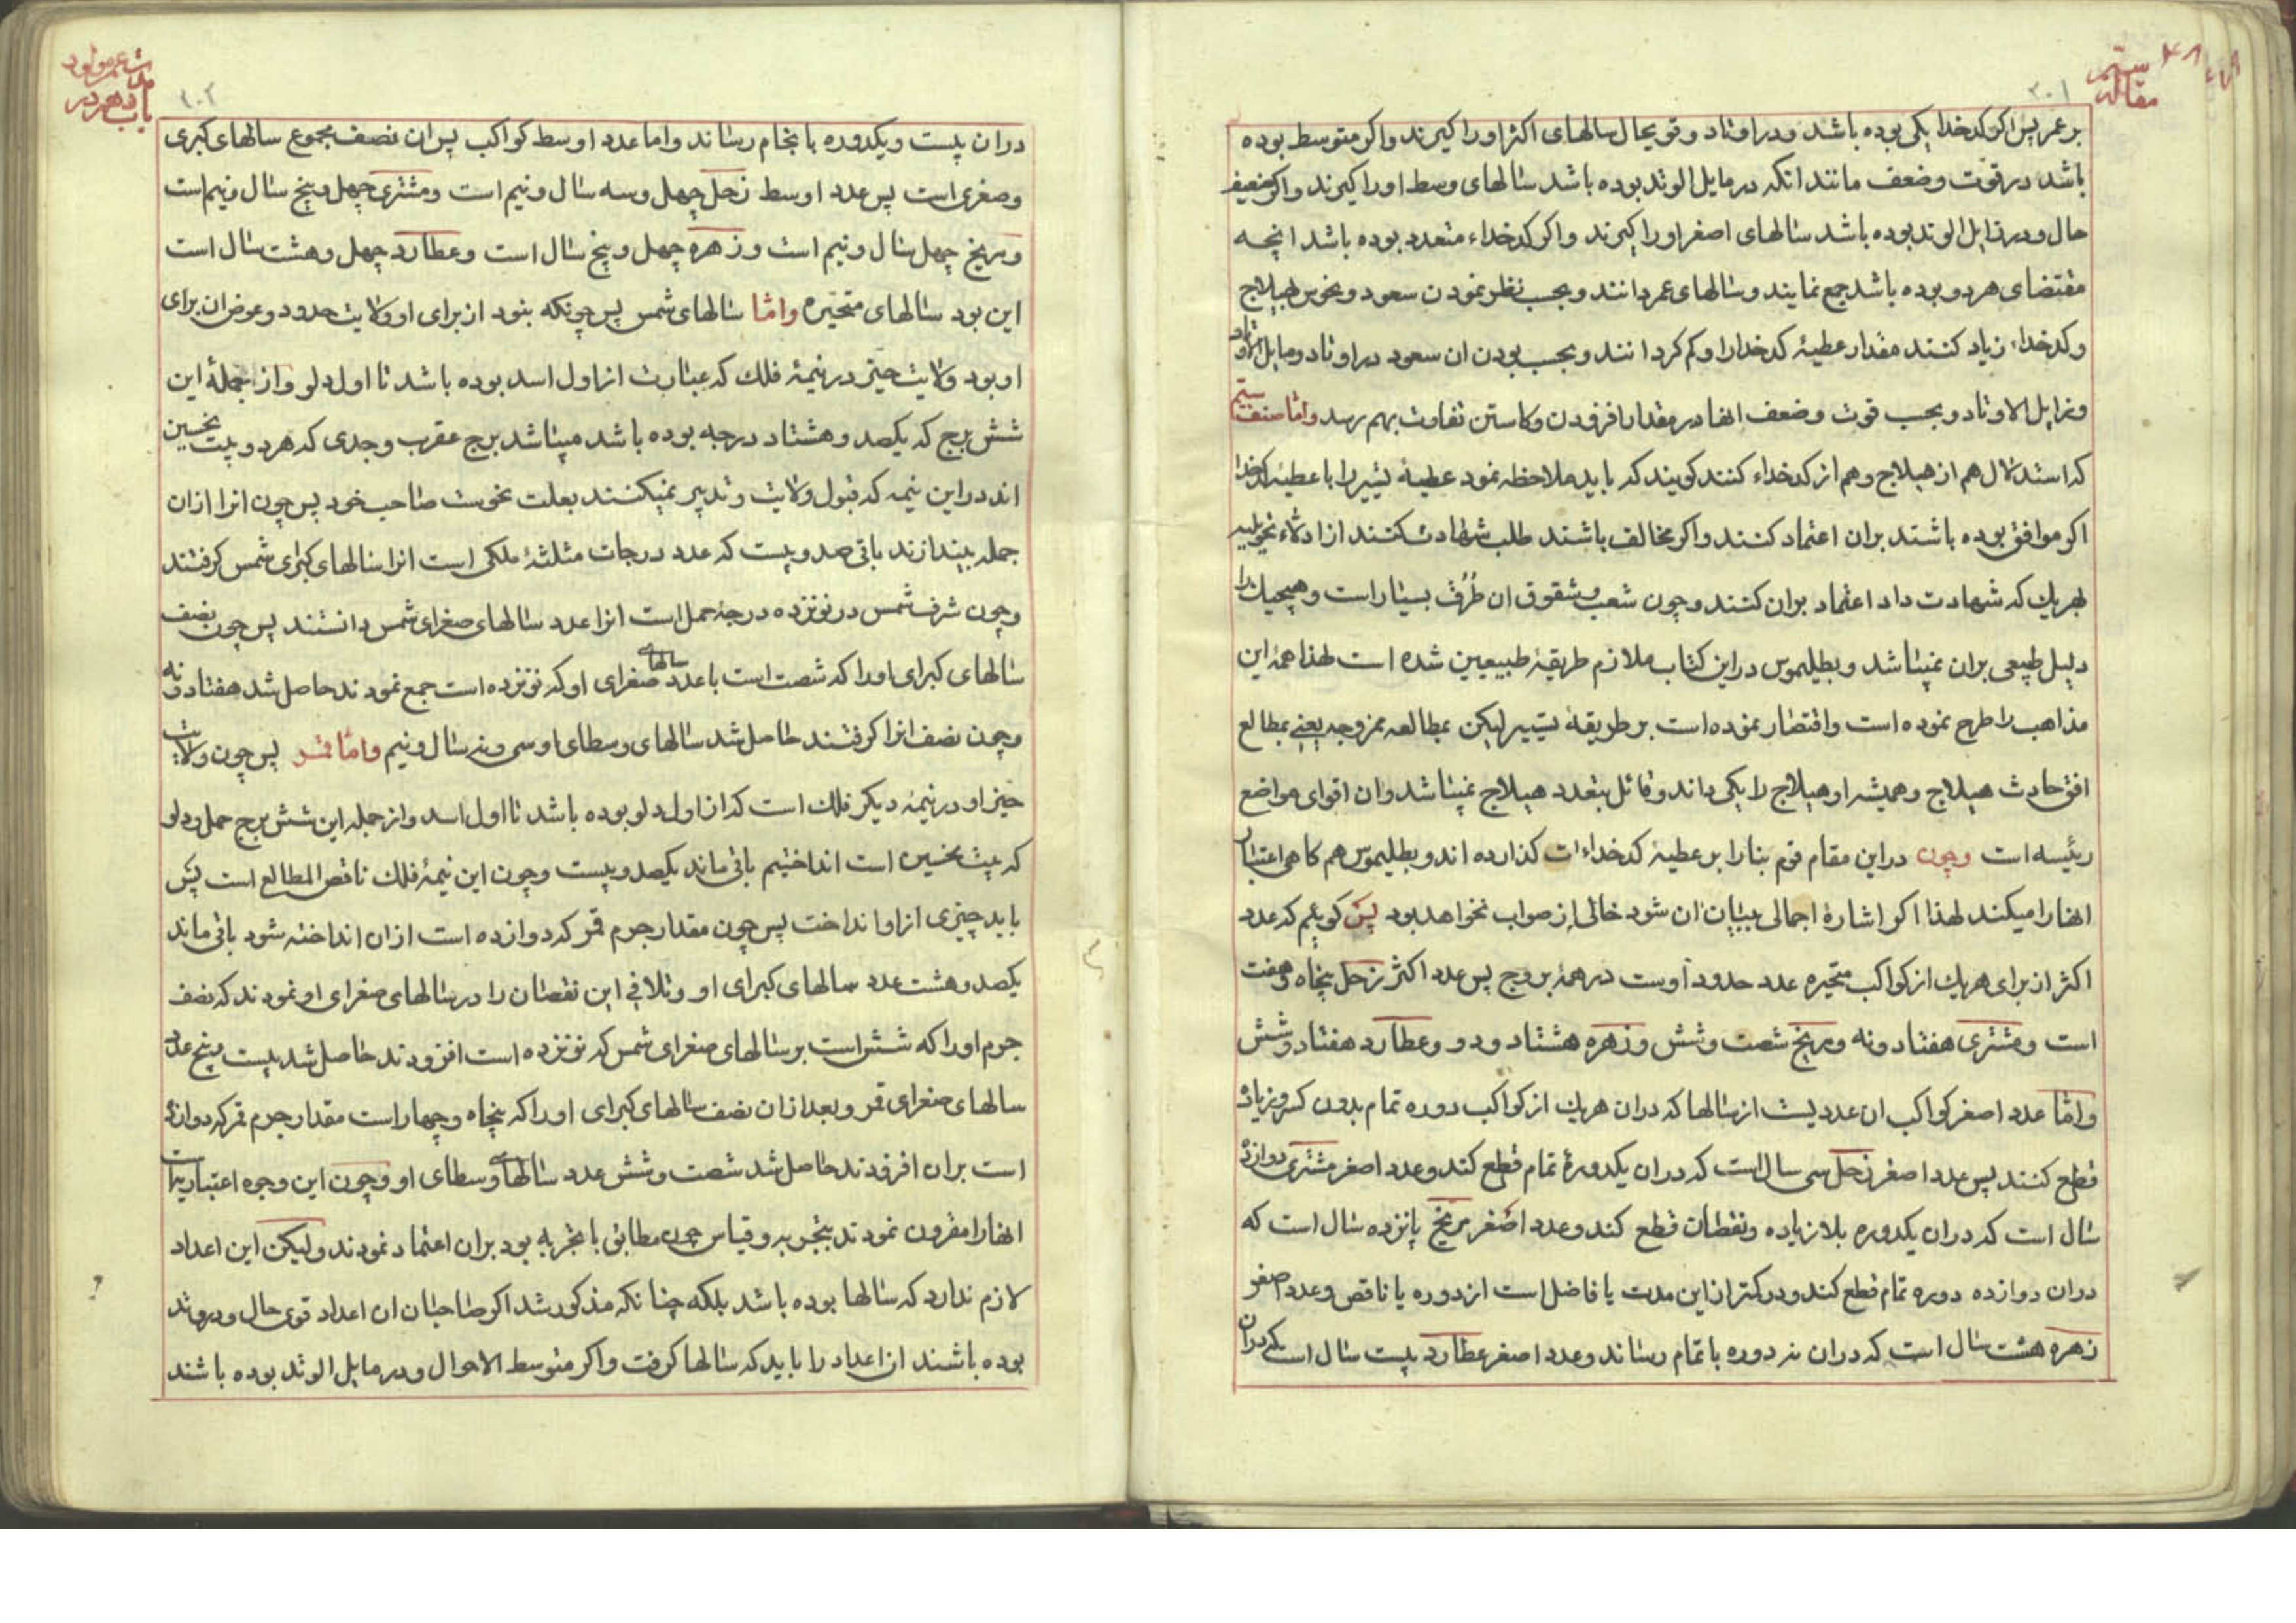 مقاله سیم
۲۰۱
بر عمر پس اکر کدخدا یکی بوده باشد و در اوتاد و قویحال سالهای اکثر او را کیرند واکر متوسط بوده
باشد در قوت وضعف مانند انکه در مایل الوتد بوده باشد سالهای وسط او را کیرند واکر ضعیف
حال و در زایل الوتد بوده باشد سالهای اصغر او را کیرند واکر کدخداء متعدد بوده باشد انچه
مقتضای هر دو بوده باشد جمع نمایند وسالهای عمر دانند و بحسب نظر نمودن سعود و نحوس بهیلاج
وکدخداء زیاد کنند مقدار عطیهٔ کدخدا را و کم کردانند و بحسب بودن ان سعود در اوتاد و مایل اوتاد
وزایل الاوتاد و بحسب قوت وضعف انها در مقدار افزودن و کاستن تفاوت بهم رسد واما صنف سیم
که استدلال هم از هیلاج و هم از کدخداء کنند کویند که باید ملاحظه نمود عطیهٔ تسییر را با عطیهٔ کدخدا
اکر موافق بوده باشند بران اعتماد کنند واکر مخالف باشند طلب شهادت کنند از ادلاء تحویلیه
بهر یك که شهادت داد اعتماد بران کنند و چون شعب و شقوق ان طرف بسیار است و هیچیك را
دلیل طبیعی بران نمیباشد و بطلیموس در این کتاب ملازم طریقهٔ طبیعیین شده است لهذا همهٔ این
مذاهب را طرح نموده است واقتصار نموده است بر طریقهٔ تسییر لیکن بمطالعه ممزوجه یعنی بمطالع
افق حادث هیلاج و همیشه او هیلاج را یکی داند و قائل بتعدد هیلاج نمیباشد وان اقوای مواضع
رئیسه است وچون در این مقام قوم بنا را بر عطیهٔ کدخداءات کذارده اند و بطلیموس هم کاهی اعتبار
انها را میکند لهذا اکر اشارهٔ اجمالی ببیان ان شود خالی از صواب نخواهد بود پس کوییم که عدد
اکثر از برای هر یك از کواکب متحیره عدد حدود اوست در همهٔ بروج پس عدد اکثر زحل پنجاه وهفت
است و مشتری هفتاد و نه و مریخ شصت و شش و زهره هشتاد و دو و عطارد هفتاد وشش
واما عدد اصغر کواکب ان عددیست از سالها که دران هر یك از کواکب دوره تمام بدون کسر و زیاد
قطع کنند پس عدد اصغر زحل سی سال است که دران یکدورهٔ تمام قطع کند و عدد اصغر مشتری دوازده
سال است که دران یکدوره بلا زیاده و نقصان قطع کند و عدد اصغر مریخ پانزده سال است که
دران دوازده دوره تمام قطع کند و در کمتر از این مدت یا فاضل است از دوره یا ناقص و عدد اصغر
زهره هشت سال است که دران نه دوره با تمام رساند و عدد اصغر عطارد بیست سال است که دران
باب دهم در مدت عمر مولود
۲۰۲
دران بیست و یکدوره بانجام رساند واما عدد اوسط کواکب پس ان نصف مجموع سالهای کبری
وصغری است پس عدد اوسط زحل چهل وسه سال ونیم است ومشتری چهل وپنج سال ونیم است
ومریخ چهل سال ونیم است وزهره چهل و پنج سال است وعطارد چهل وهشت سال است
این بود سالهای متحیره واما سالهای شمس پس چونکه نبود از برای او ولایت حدود وعوض ان برای
او بود ولایت حیّز در نیمهٔ فلك که عبارت از اول اسد بوده باشد تا اول دلو واز جملهٔ این
شش برج که یکصد وهشتاد درجه بوده باشد میباشد برج عقرب وجدی که هر دو بیت نحسین
اند در این نیمه که قبول ولایت وتدبیر نمیکنند بعلت نحوست صاحب خود پس چون انرا ازان
جمله بیندازند باقی صد وبیست که عدد درجات مثلثهٔ ملکی است انرا سالهای کبرای شمس کرفتند
وچون شرف شمس در نوزده درجهٔ حمل است انرا عدد سالهای صغرای شمس دانستند پس چون نصف
سالهای کبرای او را که شصت است با عدد سالهای صغرای او که نوزده است جمع نمودند حاصل شد هفتاد ونه
وچون نصف انرا کرفتند حاصل شد سالهای وسطای او سی ونه سال ونیم واما قمر پس چون ولایت
حیز او در نیمهٔ دیکر فلك است که از اول دلو بوده باشد تا اول اسد واز جمله این شش برج حمل ودلو
که بیت نحسین است انداختیم باقی ماند یکصد وبیست وچون این نیمهٔ فلك ناقص المطالع است پس
باید چیزی از او انداخت پس چون مقدار جرم قمر که دوازده است ازان انداخته شود باقی ماند
یکصد وهشت عدد سالهای کبرای او وتلافی این نقصان را در سالهای صغرای او نمودند که نصف
جرم او را که شش است بر سالهای صغرای شمس که نوزده است افزودند حاصل شد بیست وپنج عدد
سالهای صغرای قمر و بعد ازان نصف سالهای کبرای او را که پنجاه وچهار است مقدار جرم قمر که دوازده
است بران افزودند حاصل شد شصت وشش عدد سالهای وسطای او وچون این وجوه اعتباریات
انها را مقرون نمودند بتجربه وقیاس چون مطابق با تجربه بود بران اعتماد نمودند ولیکن این اعداد
لازم ندارد که سالها بوده باشد بلکه چنانکه مذکور شد اکر صاحبان ان اعداد قوی حال ودر وتد
بوده باشند ان اعداد را باید که سالها کرفت واکر متوسط الاحوال ودر مایل الوتد بوده باشند